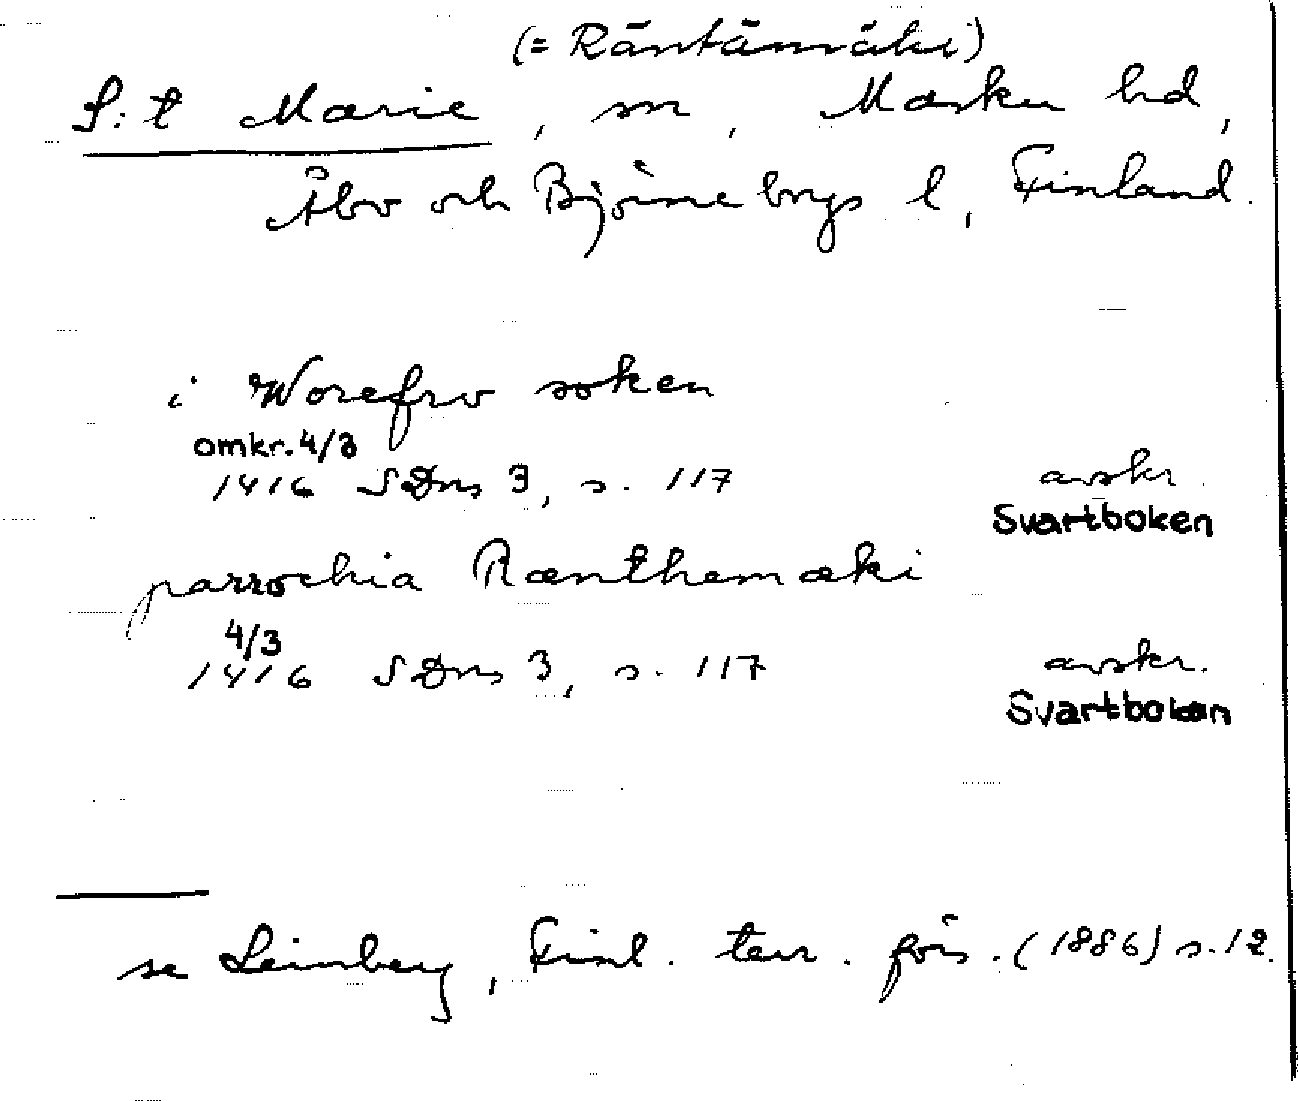 (= Räntämäki)
S:t Marie, sn, Masku hd,
Åbo och Björneborgs l, Finland.
i Worefrv soken
omkr. 4/3
1416 SDns 3, s. 117 avskr.
Svartboken
parrochia Rænthemæki
4/3
1416 SDns 3, s. 117 avskr.
Svartboken
se Leinberg, Finl. terr. förs. (1886) s. 12.